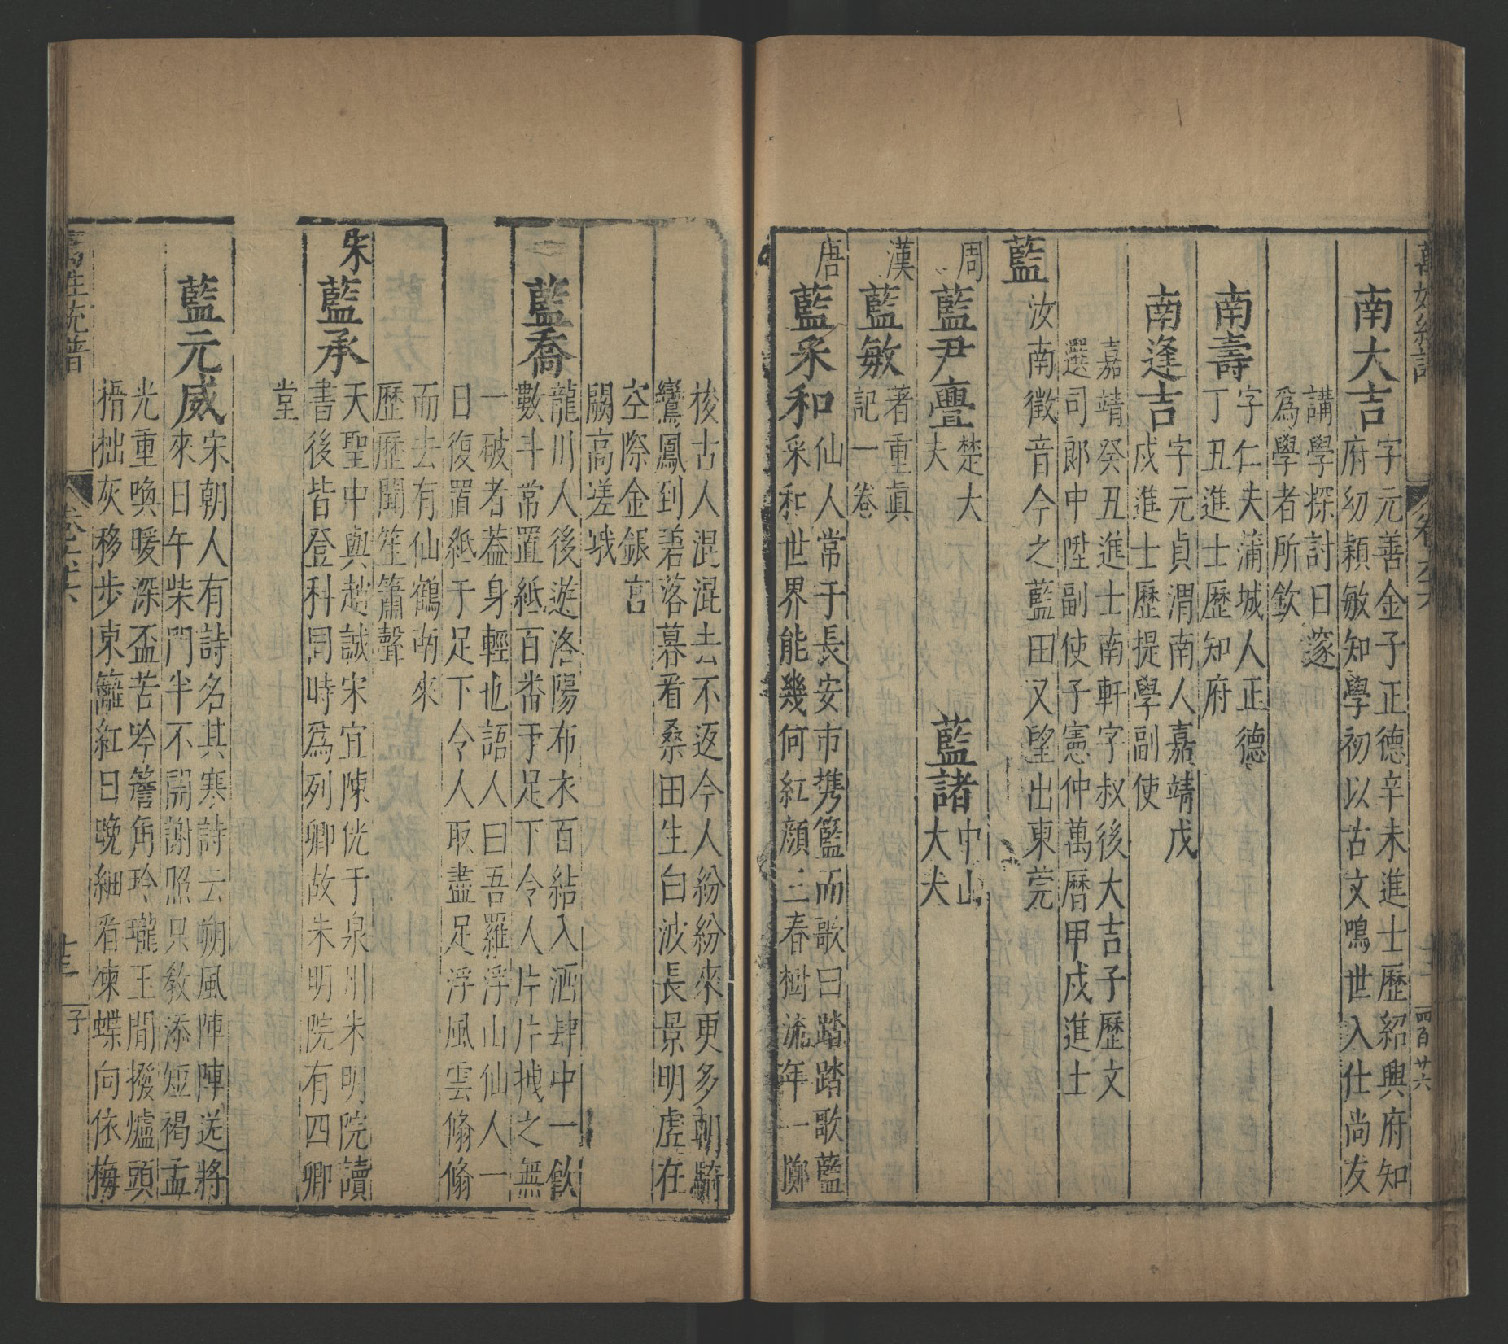 萬姓統譜
卷之六十六
南大吉
字元善金子正德辛未進士歷紹興府知
府幼穎敏知學初以古文鳴世入仕尚友
講學探討日邃
爲學者所欽
南壽
字仁夫蒲城人正德
丁丑進士歷知府
南逢吉
字元貞渭南人嘉靖戊
戌進士歷提學副使
嘉靖癸丑進士南軒字叔後大吉子歷文
選司郎中陞副使子憲仲萬曆甲戌進士
藍
汝南徵音今之藍田又望出東莞
周
藍尹亹
楚大
大
藍諸
中山
大夫
漢
藍敏
著重眞
記一卷
唐
藍采和
仙人常于長安市携籃而歌曰踏踏歌藍
采和世界能幾何紅顔三春樹流年一擲
梭古人混混去不返今人紛紛來更多朝騎
鸞鳳到碧落暮看桑田生白波長景明虛在
空際金銀宮
闕高嵯峨
藍喬
龍川人後遊洛陽布衣百結入酒肆中一飲
數斗常置紙百番于足下令人片片拽之無
一破者葢身輕也語人曰吾羅浮山仙人一
日復置紙于足下令人取盡足浮風雲翛翛
而去有仙鶴南來
歷歷聞笙簫聲
宋
藍承
天聖中與趙誠宋宜陳侁于泉州朱明院讀
書後皆登科同時爲列卿故朱明院有四卿
堂
藍元威
宋朝人有詩名其寒詩去朔風陣陣送將
來日午柴門半不開謝照只教添短褐孟
光重喚暖深盃苦吟簷角玲瓏玉閒撥爐頭
榾柮灰移步東籬紅日晚細看凍蝶向依梅
萬姓統譜
卷之六十六